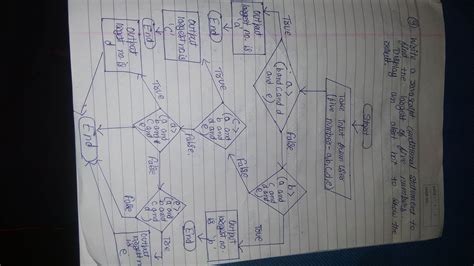 Write a JavaScript conditional statement to
find the largest of five numbers.
Display an alert box to show the
result.
Start
Take input from user
five
numbers - a,b,c,d,e
a>
(b and c and d
and e)
True
False
Output
largest no is
'a'
End
b>
(a and
c and
d and
e)
True
False
Output
largest no.
is 'b'
End
c>
(a and
b and
d and
e)
True
False
Output
largest no is
'c'
End
d>
(a and
b and
c and
e)
True
False
Output
largest no is
'd'
e>
(a and
b and
c and
d)
True
False
Output
largest no
is e
End